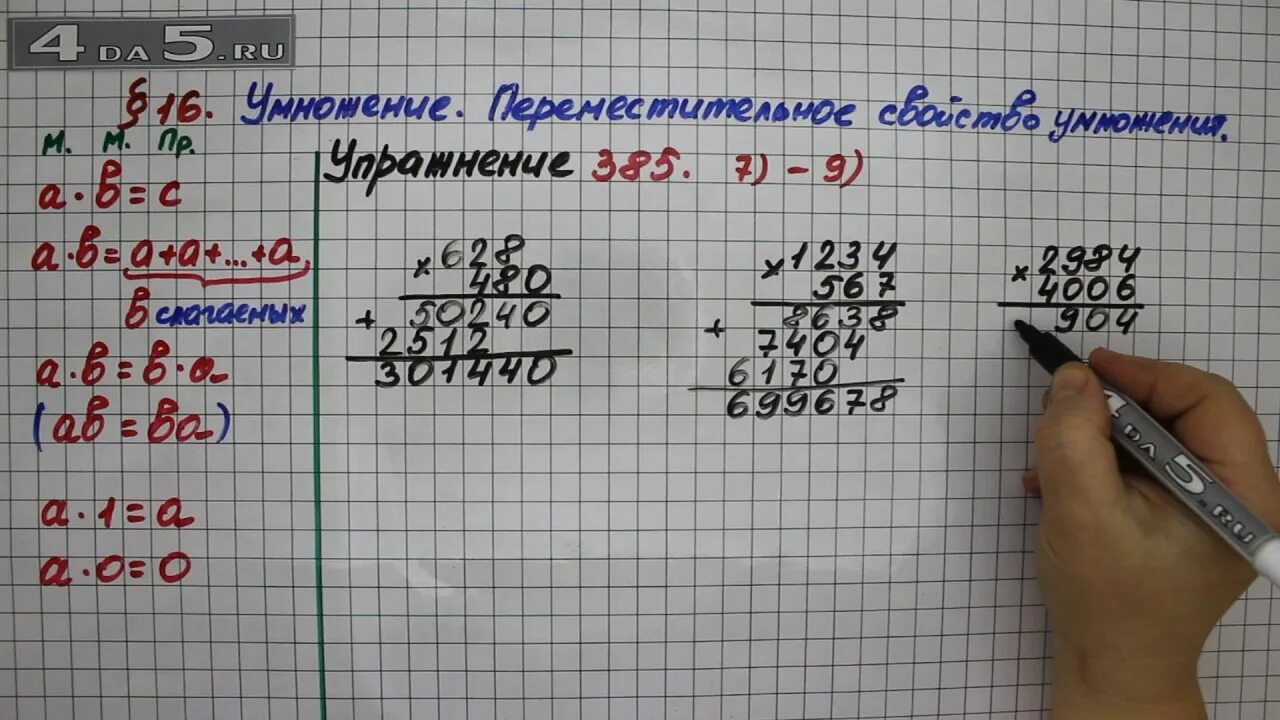 4DA5.RU
§ 16. Умножение. Переместительное свойство умножения.
м. м. Пр.
a · в = c
a · в = a+a+...+a,
в слагаемых
a · в = в · a
(aв = вa)
a · 1 = a
a · 0 = 0
Упражнение 385. 7) - 9)
× 628
480
+ 50240
2512
301440
× 1234
567
+ 8638
7404
6170
699678
× 2984
4006
904
4DA5.RU